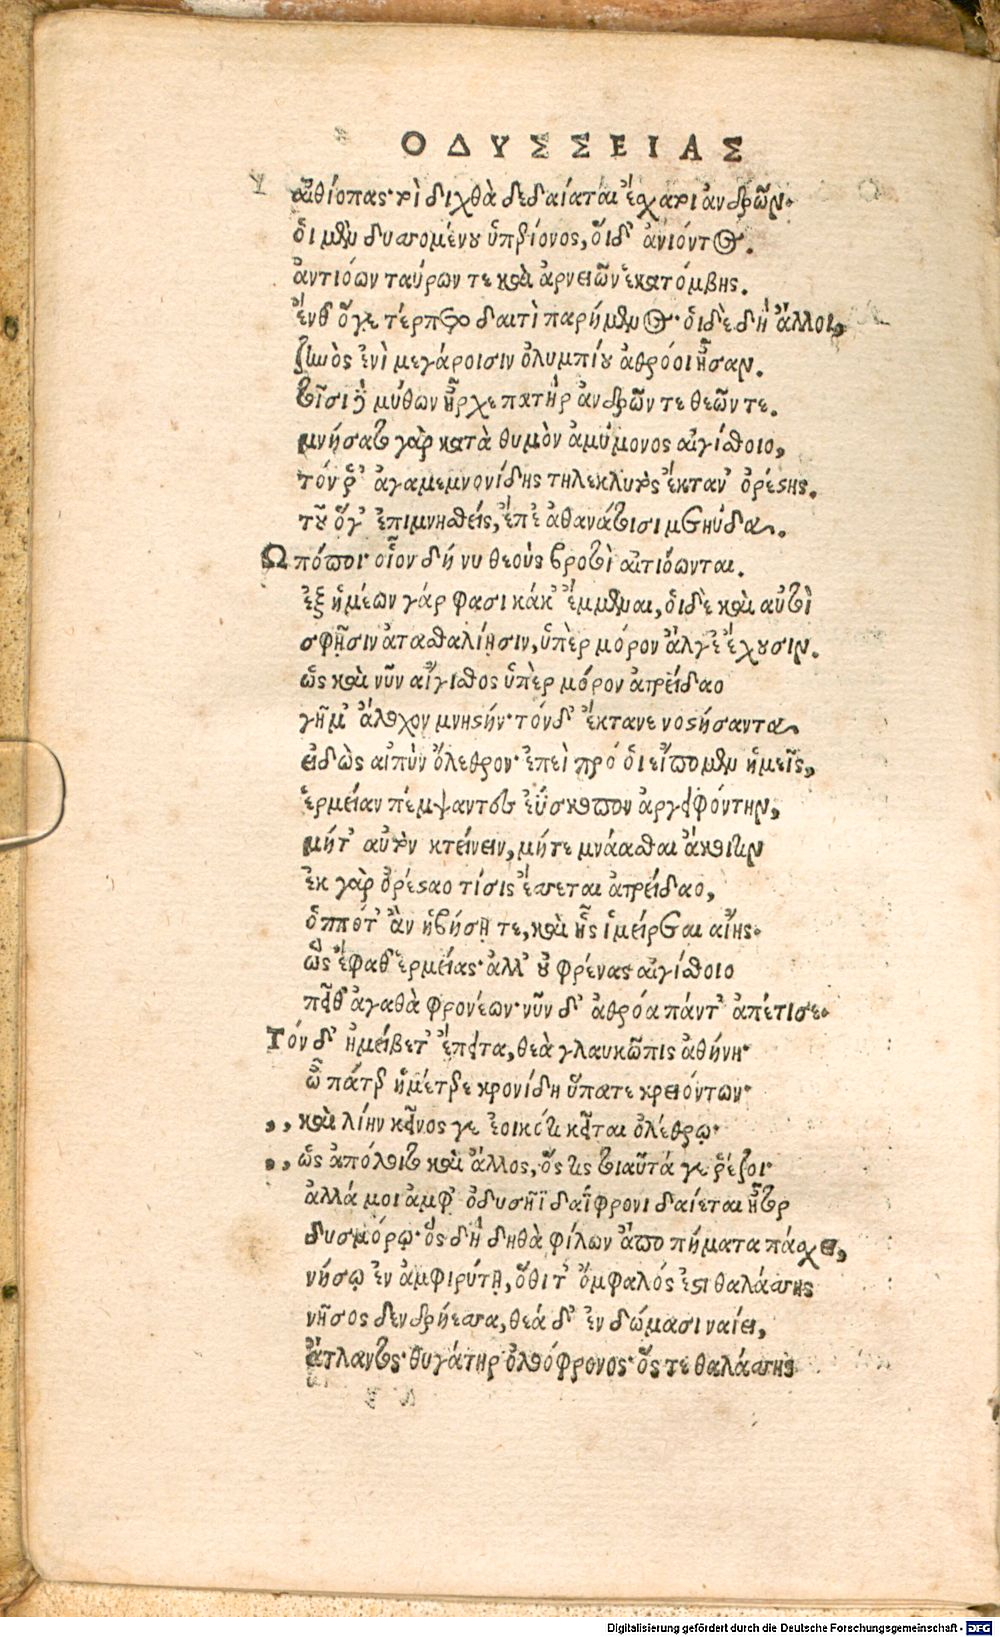 ΟΔΥΣΣΕΙΑΣ
αἰθίοπας· τοὶ διχθὰ δεδαίαται ἔσχατοι ἀνδρῶν·
οἱ μὲν δυσσομένου ὑπερίονος, οἵδ' ἀνιόντος.
ἀντιόων ταύρων τε καὶ ἀρνειῶν ἑκατόμβης.
ἔνθ' ὅγε τέρπετο δαιτὶ παρήμενος· οἱ δὲ δὴ ἄλλοι,
ζηνὸς ἐνὶ μεγάροισιν ὀλυμπίου ἀθρόοι ἦσαν.
τοῖσι δὲ μύθων ἦρχε πατὴρ ἀνδρῶν τε θεῶν τε.
μνήσατο γὰρ κατὰ θυμὸν ἀμύμονος αἰγίσθοιο,
τόν ῥ' ἀγαμεμνονίδης τηλεκλυτὸς ἔκταν' ὀρέστης.
τοῦ ὅγ' ἐπιμνησθείς, ἔπε' ἀθανάτοισι μετηύδα.
Ω πόποι οἷον δή νυ θεοὺς βροτοὶ αἰτιόωνται.
ἐξ ἡμέων γάρ φασι κάκ' ἔμμεναι, οἱ δὲ καὶ αὐτοὶ
σφῇσιν ἀτασθαλίῃσιν, ὑπὲρ μόρον ἄλγε' ἔχουσιν.
ὡς καὶ νῦν αἴγισθος ὑπὲρ μόρον ἀτρείδαο
γῆμ' ἄλοχον μνηστήν· τόνδ' ἔκτανε νοστήσαντα
εἰδὼς αἰπὺν ὄλεθρον· ἐπεὶ πρό οἱ εἴπομεν ἡμεῖς,
ἑρμείαν πέμψαντες ἐΰσκοπον ἀργειφόντην,
μήτ' αὐτὸν κτείνειν, μήτε μνάασθαι ἄκοιτιν
ἐκ γὰρ ὀρέσταο τίσις ἔσσεται ἀτρείδαο,
ὁππότ' ἂν ἡβήσῃ τε, καὶ ἧς ἱμείρεται αἴης·
ὣς ἔφαθ' ἑρμείας· ἀλλ' οὐ φρένας αἰγίσθοιο
πεῖθ' ἀγαθὰ φρονέων· νῦν δ' ἀθρόα πάντ' ἀπέτισε·
Τόν δ' ἠμείβετ' ἔπειτα, θεὰ γλαυκῶπις ἀθήνη·
ὦ πάτερ ἡμέτερε κρονίδη ὕπατε κρειόντων·
,, καὶ λίην κεῖνος γε ἐοικότι κεῖται ὀλέθρῳ·
,, ὡς ἀπόλοιτο καὶ ἄλλος, ὅς τις τοιαῦτά γε ῥέζοι·
ἀλλά μοι ἀμφ' ὀδυσῆϊ δαΐφρονι δαίεται ἦτορ
δυσμόρῳ· ὃς δὴ δηθὰ φίλων ἄπο πήματα πάσχει,
νήσῳ ἐν ἀμφιρύτῃ, ὅθι τ' ὀμφαλός ἐστι θαλάσσης
νῆσος δενδρήεσσα, θεά δ' ἐν δώμασι ναίει,
ἄτλαντος θυγάτηρ ὀλοόφρονος· ὅς τε θαλάσσης